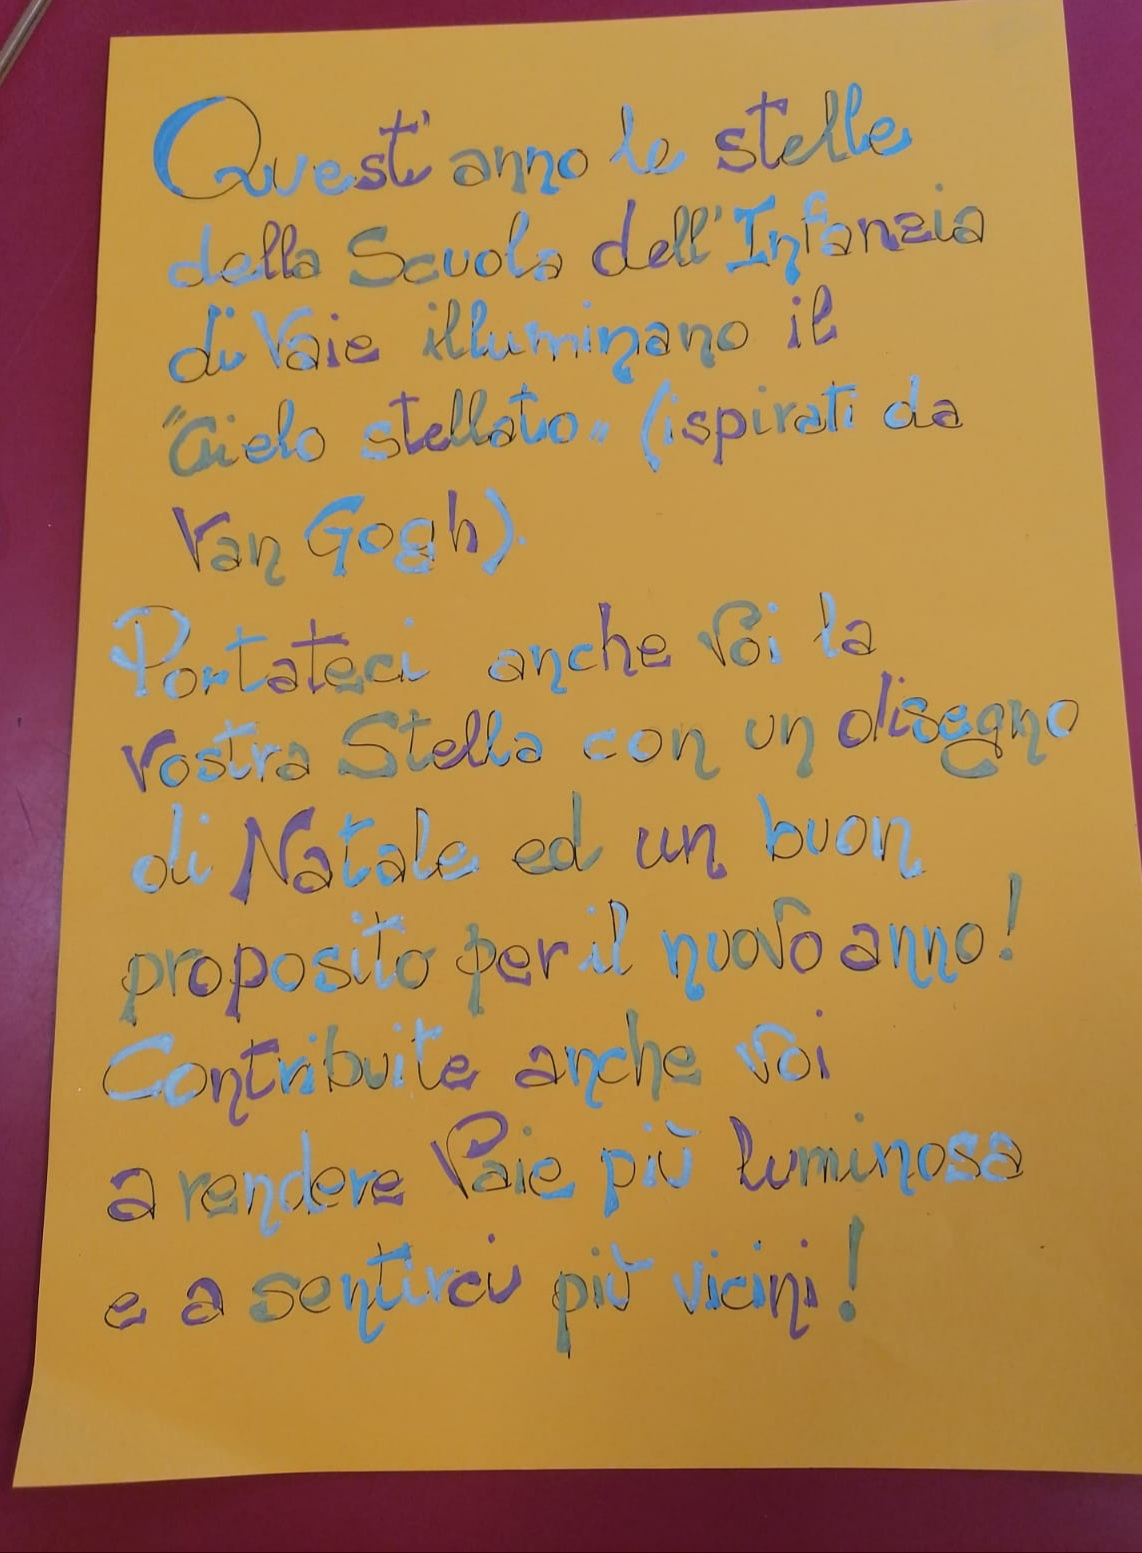 Quest'anno le stelle
della Scuola dell'Infanzia
di Vaie illuminano il
"Cielo stellato" (ispirati da
Van Gogh).
Portateci anche voi la
vostra Stella con un disegno
di Natale ed un buon
proposito per il nuovo anno!
Contribuite anche voi
a rendere Vaie più luminosa
e a sentirci più vicini!